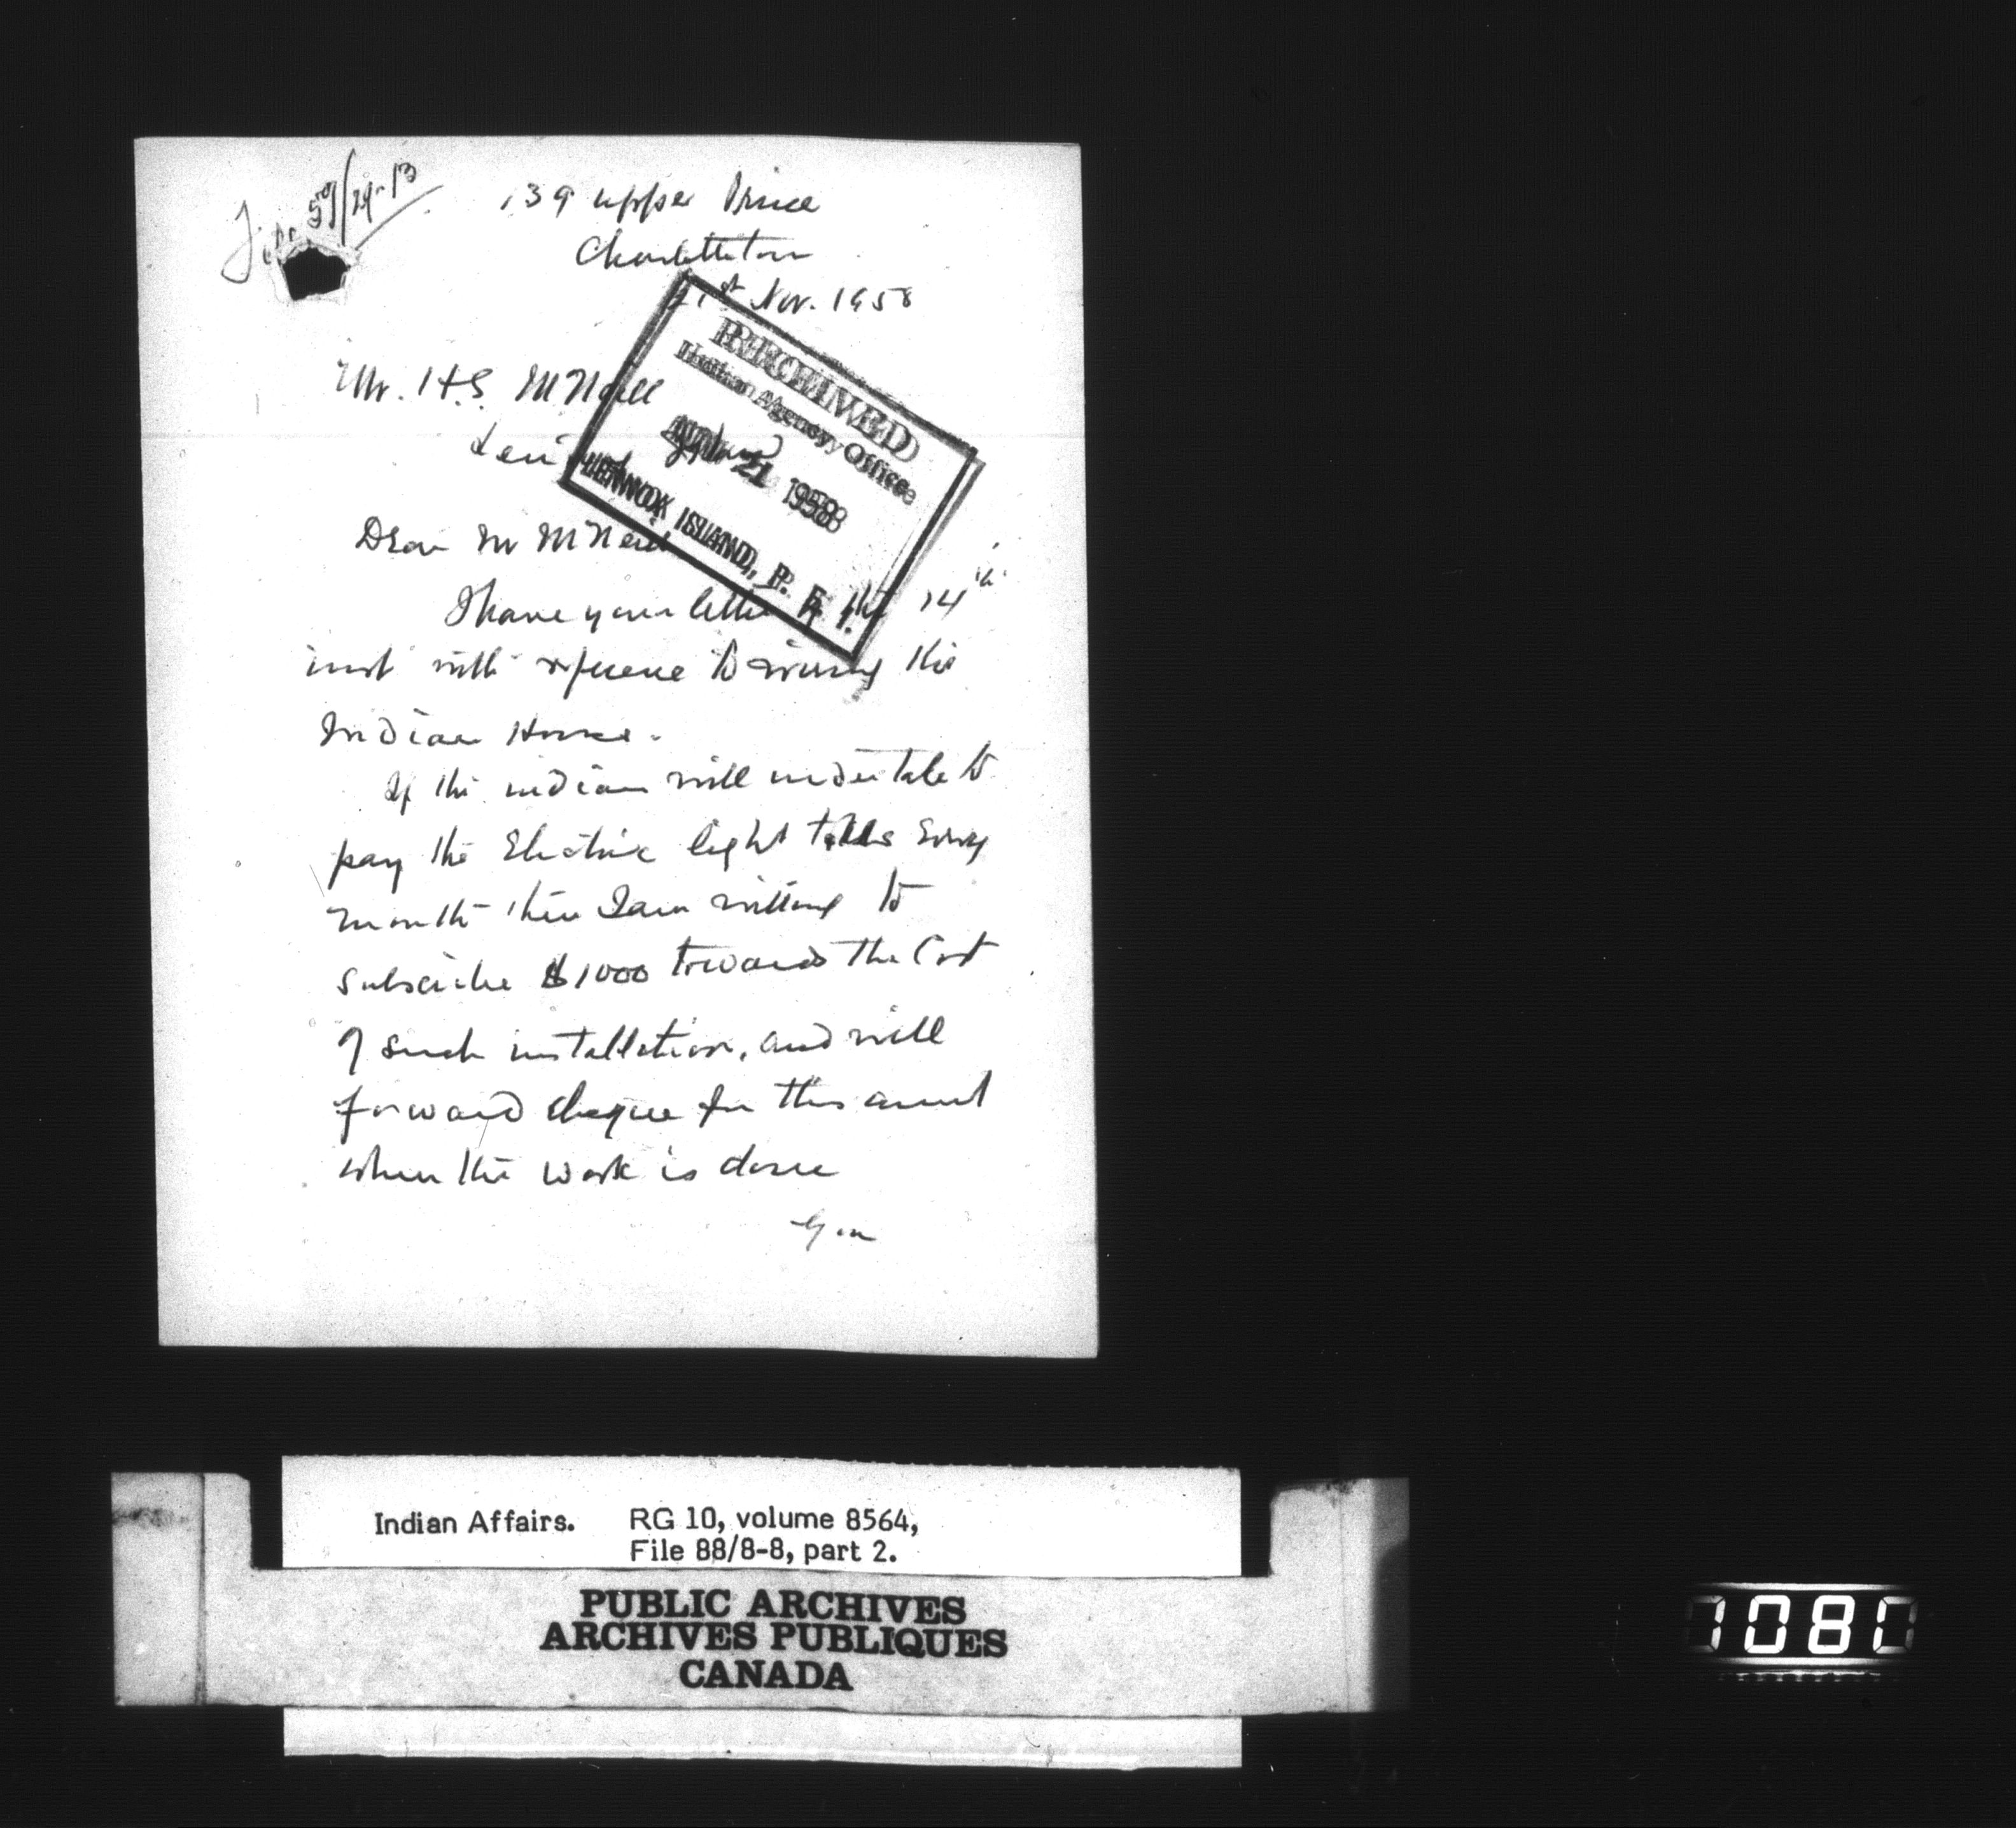 File 59/29-13
139 upper Prince
Charlottetown
21st Nov. 1958
RECEIVED
Indian Agency Office
21 1958
LENNOX ISLAND, P. E. I.
Mr. H.S. McNeill
Dear Mr McNeill
I have your letter of the 14th
inst with reference to wiring the
Indian Homes.
If the indians will undertake to
pay the Electric light every
month then I am willing to
subscribe $1000 towards the Cost
of such installation, and will
forward cheque for this amount
when the work is done
Indian Affairs. RG 10, volume 8564,
File 88/8-8, part 2.
PUBLIC ARCHIVES
ARCHIVES PUBLIQUES
CANADA